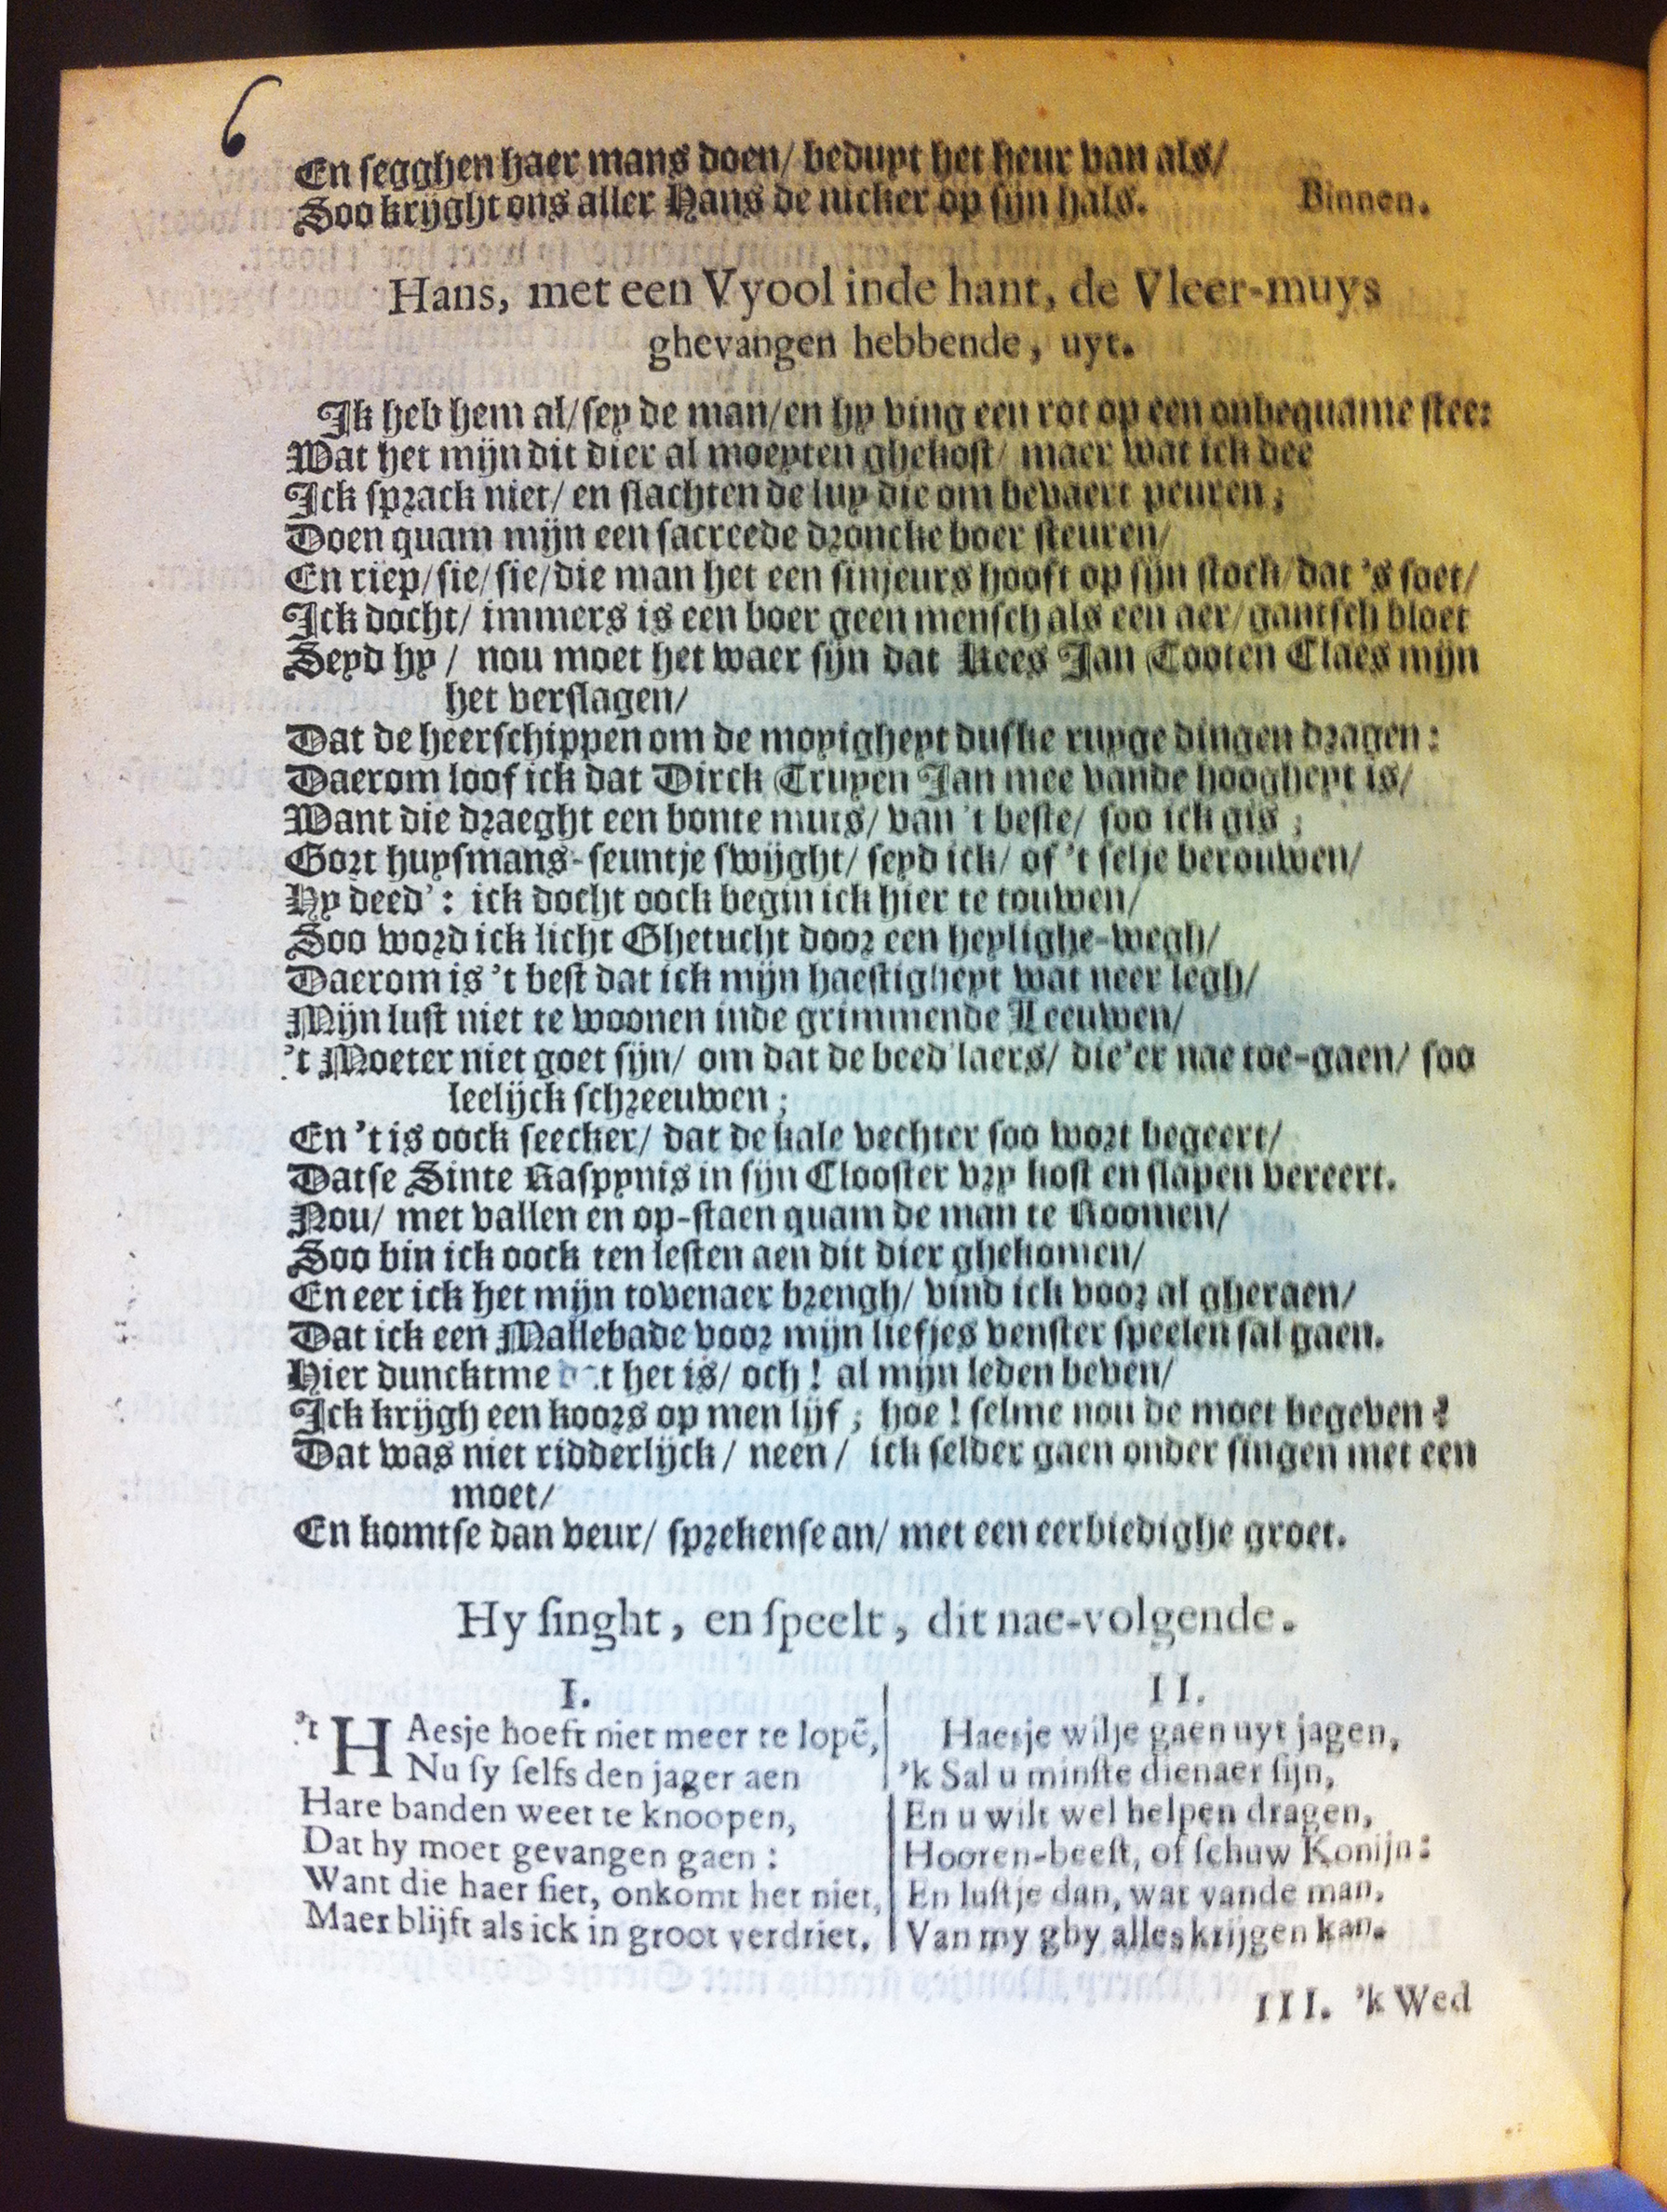 6
En segghen haer mans doen/ beduyt het heur van als/
Soo krijght ons aller Hans de nicker op sijn hals. Binnen.
Hans, met een Vyool inde hant, de Vleer-muys
ghevangen hebbende, uyt.
Ik heb hem al/ sey de man/ en hy ving een rot op een onbequame stee:
Wat het mijn dit dier al moeyten ghekost/ maer wat ick dee
Ick sprack niet/ en slachten de luy die om bevaert peuren;
Doen quam mijn een sacreede droncke boer steuren/
En riep/ sie/ sie/ die man het een sinjeurs hooft op sijn stock/ dat 's soet/
Ick docht/ immers is een boer geen mensch als een aer/ gantsch bloet
Seyd hy/ nou moet het waer sijn dat Kees Jan Tooten Claes mijn
het verslagen/
Dat de heerschippen om de moyigheyt duske ruyge dingen dragen:
Daerom loof ick dat Dirck Truyen Jan mee vande hoogheyt is/
Want die draeght een bonte muts/ van 't beste/ soo ick gis;
Gort huysmans-seuntje swijght/ seyd ick/ of 't selje berouwen/
Hy deed': ick docht oock begin ick hier te touwen/
Soo word ick licht Ghetucht door een heylighe-wegh/
Daerom is 't best dat ick mijn haestigheyt wat neer legh/
Mijn lust niet te woonen inde grimmende Leeuwen/
't Moeter niet goet sijn/ om dat de beed'laers/ die'er nae toe-gaen/ soo
leelijck schreeuwen;
En 't is oock seecker/ dat de kale vechter soo wort begeert/
Datse Sinte Raspynis in sijn Clooster vry kost en slapen vereert.
Nou/ met vallen en op-staen quam de man te Roomen/
Soo bin ick oock ten lesten aen dit dier ghekomen/
En eer ick het mijn tovenaer brengh/ vind ick voor al gheraen/
Dat ick een Mallebade voor mijn liefjes venster speelen sal gaen.
Hier dunckt me dat het is/ och! al mijn leden beven/
Ick krijgh een koors op men lijf; hoe! selme nou de moet begeven?
Dat was niet ridderlijck/ neen/ ick selder gaen onder singen met een
moet/
En komtse dan veur/ sprekense an/ met een eerbiedighe groet.
Hy singht, en speelt, dit nae-volgende.
I.
't HAesje hoeft niet meer te lopē,
Nu sy selfs den jager aen
Hare banden weet te knoopen,
Dat hy moet gevangen gaen:
Want die haer siet, onkomt het niet,
Maer blijft als ick in groot verdriet.
II.
Haesje wilje gaen uyt jagen,
'k Sal u minste dienaer sijn,
En u wilt wel helpen dragen,
Hooren-beest, of schuw Konijn:
En lustje dan, wat vande man,
Van my ghy alles krijgen kan.
III. 'k Wed